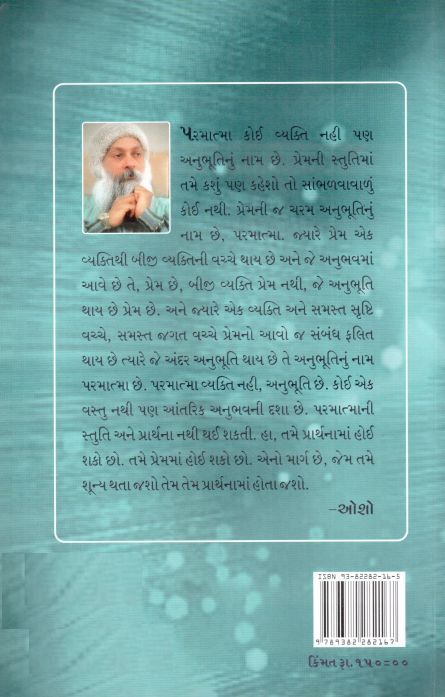 પરમાત્મા કોઈ વ્યક્તિ નહી પણ
અનુભૂતિનું નામ છે. પ્રેમની સ્તુતિમાં
તમે કશું પણ કહેશો તો સાંભળવાવાળું
કોઈ નથી. પ્રેમની જ ચરમ અનુભૂતિનું
નામ છે, પરમાત્મા. જ્યારે પ્રેમ એક
વ્યક્તિથી બીજી વ્યક્તિની વચ્ચે થાય છે અને જે અનુભવમાં
આવે છે તે, પ્રેમ છે, બીજી વ્યક્તિ પ્રેમ નથી, જે અનુભૂતિ
થાય છે પ્રેમ છે. અને જ્યારે એક વ્યક્તિ અને સમસ્ત સૃષ્ટિ
વચ્ચે, સમસ્ત જગત વચ્ચે પ્રેમનો આવો જ સંબંધ ફલિત
થાય છે ત્યારે જે અંદર અનુભૂતિ થાય છે તે અનુભૂતિનું નામ
પરમાત્મા છે. પરમાત્મા વ્યક્તિ નહી, અનુભૂતિ છે. કોઈ એક
વસ્તુ નથી પણ આંતરિક અનુભવની દશા છે. પરમાત્માની
સ્તુતિ અને પ્રાર્થના નથી થઈ શકતી. હા, તમે પ્રાર્થનામાં હોઈ
શકો છો. તમે પ્રેમમાં હોઈ શકો છો. એનો માર્ગ છે, જેમ તમે
શૂન્ય થતા જશો તેમ તેમ પ્રાર્થનામાં હોતા જશો.
–ઓશો
ISBN 93-82282-16-5
9 789382 282167
કિંમત રૂા. ૧૫૦=૦૦